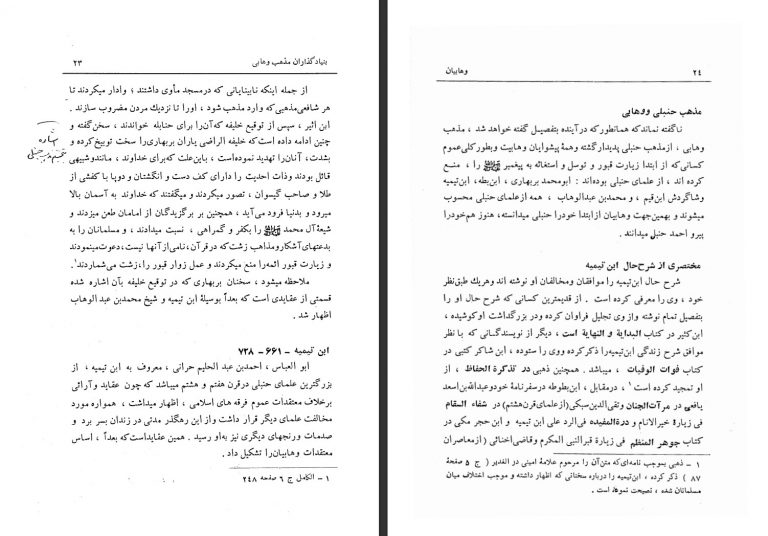 بنیادگذاران مذهب وهابی ۲۳
از جمله اینکه نابینایانی که درمسجد مأوی داشتند ؛ وادار میکردند تا
هر شافعی‌مذهبی‌که وارد مذهب شود ، اورا تا نزدیك مردن مضروب سازند .
ابن اثیر ، سپس از توقیع خلیفه که‌آن‌را برای حنابله خواندند ، سخن‌گفته و
چنین ادامه داده است‌که خلیفه الراضی یاران بربهاری‌را سخت توبیخ‌کرده و
بشدت ، آنان‌را تهدید نموده‌است ، باین‌علت که‌برای خداوند ، مانندوشبیهی
قائل بودند وذات احدیت را دارای کف دست و انگشتان و دوپا با کفشی از
طلا و صاحب گیسوان ، تصور میکردند و میگفتند که خداوند به آسمان بالا
میرود و بدنیا فرود می‌آید ، همچنین بر برگزیدگان از امامان طعن میزدند و
شیعهٔ آل محمد ﷺ را بکفر و گمراهی ، نسبت میدادند ، و مسلمانان را به
بدعتهای آشکارومذاهب زشت‌که درقرآن ، نامی‌از آنها نیست ، دعوت‌مینمودند
و زیارت قبور ائمه‌را منع میکردند و عمل زوار قبور را ، زشت می‌شماردند .۱
ملاحظه میشود ، سخنان بربهاری که در توقیع خلیفه بآن اشاره شده
قسمتی از عقایدی است که بعداً بوسیلهٔ ابن تیمیه و شیخ محمدبن عبد الوهاب
اظهار شد .
ابن تیمیه - ۶۶۱ - ۷۲۸
ابو العباس ، احمدبن عبد الحلیم حرانی ، معروف به ابن تیمیه ، از
بزرگترین علمای حنبلی درقرن هفتم و هشتم میباشد که چون عقاید وآرائی
برخلاف معتقدات عموم فرقه های اسلامی ، اظهار میداشت ، همواره مورد
مخالفت علمای دیگر قرار داشت واز این رهگذر مدتی در زندان بسر برد و
صدمات ورنجهای دیگری نیز به‌او رسید . همین عقایداست‌که بعداً ، اساس
معتقدات وهابیان‌را تشکیل داد .
۱ - الکامل ج ۶ صفحه ۲۴۸
۲۴ وهابیان
مذهب حنبلی ووهابی
ناگفته نماندکه همانطورکه درآینده بتفصیل گفته خواهد شد ، مذهب
وهابی ، ازمذهب حنبلی پدیدارگشته وهمهٔ پیشوایان وهابیت وبطورکلی‌عموم
کسانی‌که از ابتدا زیارت قبور و توسل و استغاثه به پیغمبر ﷺ را ، منع
کرده اند ، از علمای حنبلی بوده‌اند : ابومحمد بربهاری ، ابن‌بطه ، ابن‌تیمیه
وشاگردش ابن‌قیم ، و محمدبن عبدالوهاب ، همه ازعلمای‌حنبلی محسوب
میشوند و بهمین‌جهت وهابیان ازابتدا خودرا حنبلی میدانسته ، هنوز هم‌خودرا
پیرو احمد حنبل میدانند .
مختصری از شرح‌حال ابن تیمیه
شرح حال ابن‌تیمیه را موافقان ومخالفان او نوشته اند وهریك طبق‌نظر
خود ، وی‌را معرفی کرده است . از قدیمترین کسانی که شرح حال او را
بتفصیل تمام نوشته وازوی تجلیل فراوان کرده ودر بزرگداشت اوکوشیده ،
ابن‌کثیر در کتاب البدایة و النهایة است ، دیگر از نویسندگانی که با نظر
موافق شرح زندگی ابن‌تیمیه‌را ذکرکرده ووی را ستوده ، ابن شاکر کتبی در
کتاب فوات الوفیات ، میباشد . همچنین ذهبی در تذکرة الحفاظ ، از
او تمجید کرده است ۱ ، درمقابل ، ابن‌بطوطه درسفرنامهٔ خودوعبدالله‌بن‌اسعد
یافعی در مرآت‌الجنان وتقی‌الدین‌سبکی(ازعلمای‌قرن‌هشتم) در شفاء السقام
فی زیارة خیرالانام و درةالمفیده فی‌الرد علی ابن تیمیه و ابن حجر مکی در
کتاب جوهر المنظم فی زیارة قبرالنبی المکرم وقاضی‌اخنائی (ازمعاصران
۱ - ذهبی بموجب نامه‌ای‌که متن‌آن را مرحوم علامهٔ امینی در الغدیر ( ج ۵ صفحهٔ
۸۷ ) ذکر کرده ، ابن‌تیمیه را درباره سخنانی که اظهار داشته و موجب اختلاف میان
مسلمانان شده ، نصیحت نموده است .